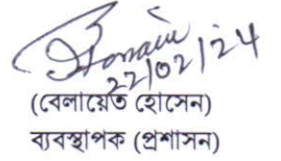 22/02/24
(বেলায়েত হোসেন)
ব্যবস্থাপক (প্রশাসন)